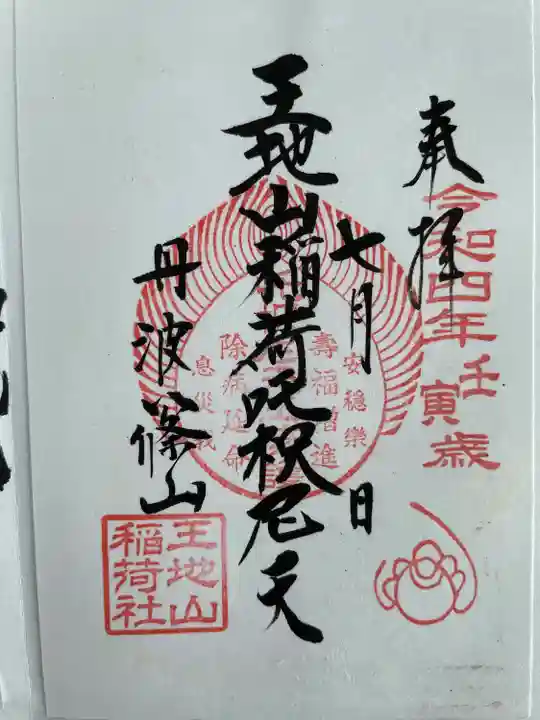 奉拝
令和四年
壬寅歳
七月 日
王地山稲荷吒枳尼天
丹波篠山
安穏樂
壽福増進
除病延命
息災
王地山
稲荷社